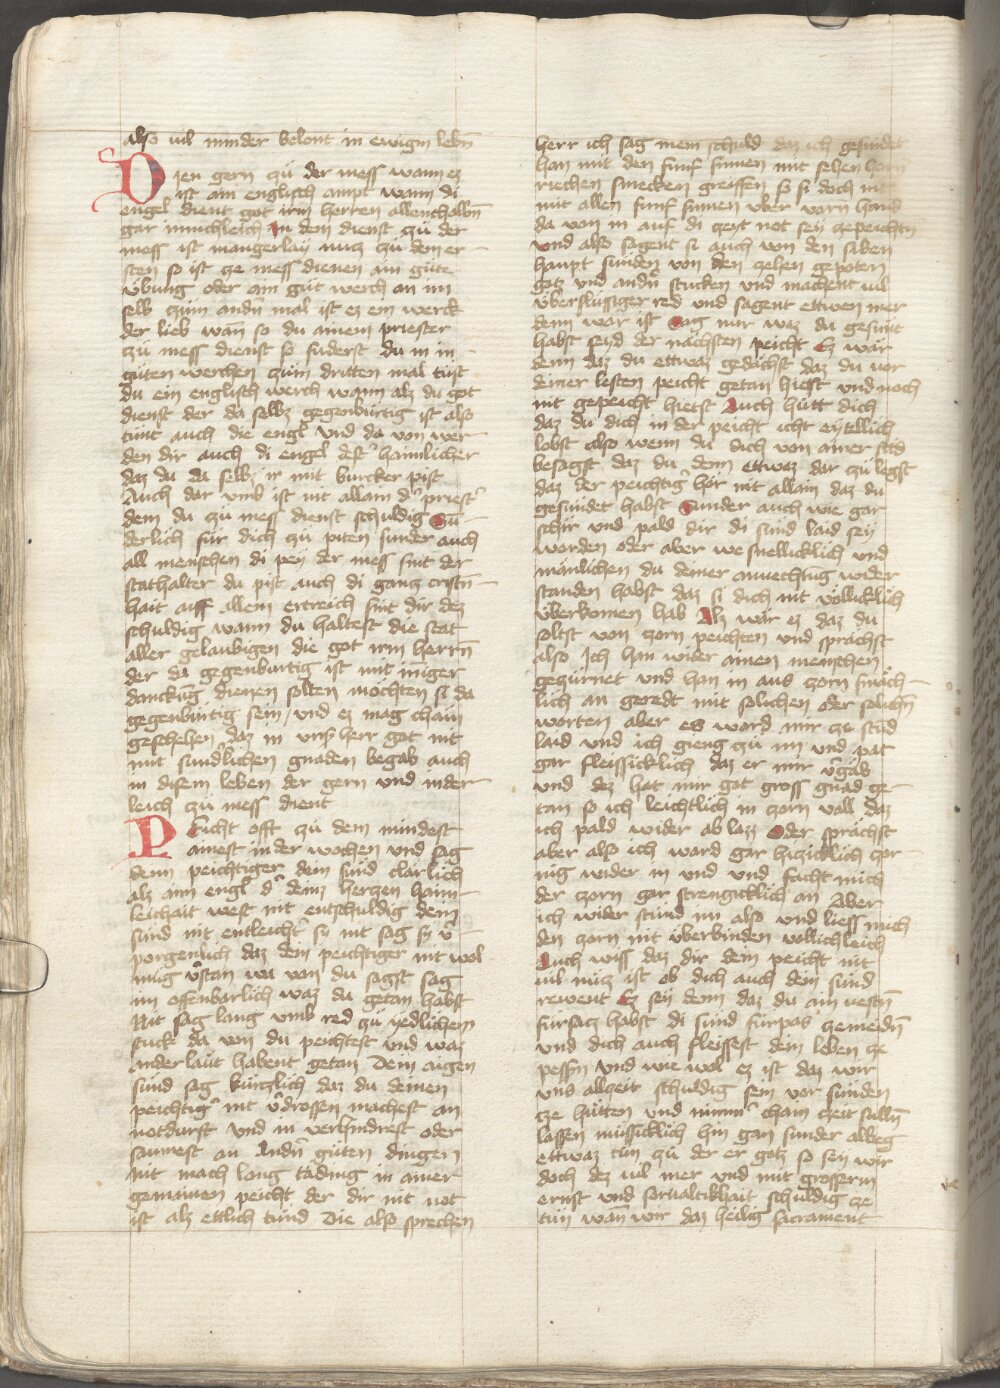 also uil minder belont in ewigm lebn̄
Dien gern czü der mess wann ez
ist ain englisch ampt wann di
engel dient got irm herren allenthalbn̄
gar minichleich In dem dienst czü der
mess ist mangerlay nucz czü dem er
sten so ist ze mess dienen ain güte
übung oder ain güt werch an im
selb czüm andn̄ mal ist ez ein werck
der lieb wan̄ so du ainem priester
czü mess dienst so fuderst du in in
guten werchen czüm dritten mal tüst
du ein englisch werch wann alz du got
dienst der da selbz gegenburtig ist also
tünt auch die engl vnd da von wer
den dir auch di engel dest haimlicher
daz du da selbz ir mit burcker pist
Auch dar vmb ist nit allain d' priest'
dem du czü mess dienst schuldig Sü
derlich für dich zü piten sunder auch
all menschen di pey der mess sint der
stathalter du pist auch di gancz cristn̄
hait auff allem ertreich sint dir dez
schuldig wann du haltest die stat
aller gelaubigen die got irm herrn̄
der da gegenburtig ist mit in̄iger
danckūg dienen solten mochten si da
gegenbürtig sein / vnd ez mag chain
geschehen daz in vnß herr got nit
mit sundlichen gnaden begab auch
in disem leben der gern vnd inder
leich czü mess dient
Peicht offt czü dem mindest
ainest in der wochen vnd sag
denn peichtiger dein sünd clärlich
alz aim engl d' deinz herczen haim
leichait west nit entschuldig dein
sünd nit entleicht sy nit sag sy v'
porgenlich daz dein peichtiger nit wol
müg v'stan wa von du sagst sag
im offenbarlich waz du getan habst
Nit sag lang vmb red zü yedlichem
stuck da von du peichtest vnd waz
ander läut habent getan Dein aigen
sünd sag kürczlich daz du deinen
peichtig' nit v'drossen machest an
notdurft vnd in verhindrest oder
saumest an andn̄ güten dingen
nit mach lang täding in ainer
gemainen peicht der dir nit not
ist alz ettlich tünd Die also sprechen
herr ich sag mein schuld daz ich gesündet
han mit den funf sinnen mit sehen hörn
riechen smecken greiffen so si doch nit
mit allen funf sinnen vber varn hand
da von in auf di czeyt not sey zepeichtn
vnd also sagent si auch von den siben
haupt sunden von den zehen gepoten
gotz vnd andn̄ stucken vnd machent uil
überflussiger red vnd sagent ettwen mer
denn war ist Sag nur waz du gesünt
habst seyd der nächsten peicht Ez wär
denn daz du ettwaz gedächst daz du vor
deiner lesten peicht getan hiest vnd noch
nit gepeicht hietst Auch hütt dich
daz du dich in der peicht icht eytellich
lobst also wenn du dich von ainer sünd
besagst daz du denn ettwaz dar zü legst
daz der peichtig hör nit allain daz du
gesündet habst Sunder auch wie gar
schir vnd pald dir di sünd laid sey
worden oder aber wie snellicklich vnd
mänlichen du deiner anuechtūg wider
standen habst daz si dich nit vollicklich
überkomen hab Alz wär ez daz du
soltst von zorn peichten vnd sprächst
also Ich han wider ainen menschen
gezürnet vnd han in aus zorn smäch
lich an geredt mit solichen oder solichn̄
worten aber es ward mir ze stüd
laid vnd ich gieng zü im vnd pat
gar fleissicklich daz er mir v'gäb
vnd daz hat mir got gross gnad ge
tan so ich leichtlich in zorn vall daz
ich pald wider ab lazz Oder sprächst
aber also ich ward gar hiczicklich zor
nig wider in vnd vnd facht mich
der zorn gar strengicklich an Aber
ich wider stünd im also vnd liess mich
den zorn nit überbinden vollichleich
Auch wiss daz dir dein peicht nit
uil nücz ist ob dich auch dein sünd
rewent Ez sey denn daz du ain uestn̄
fürsacz habst di sünd fürpas zemeidn̄
vnd dich auch fleissest dein leben ze
pessn̄ vnd wie wol ez ist daz wir
vns allzeit schuldig sein vor sünden
ze hütten vnd nimm' chain czeit sülln̄
lassen müssicklich hin gan sunder albeg
ettwaz tün zü der er gotz so sey wir
doch dez uil mer vnd mit grosserm
ernst vnd sorualtikhait schuldig ze
tün wan̄ wir daz heilig sacrament